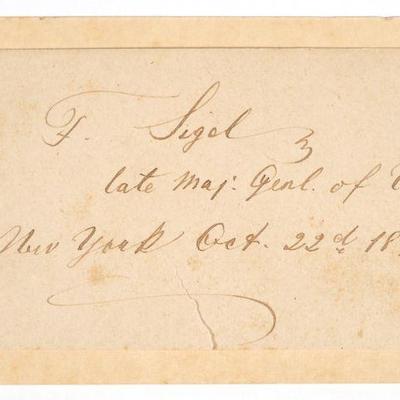 F. Sigel
late Maj: Genl. of
New York Oct. 22d 18